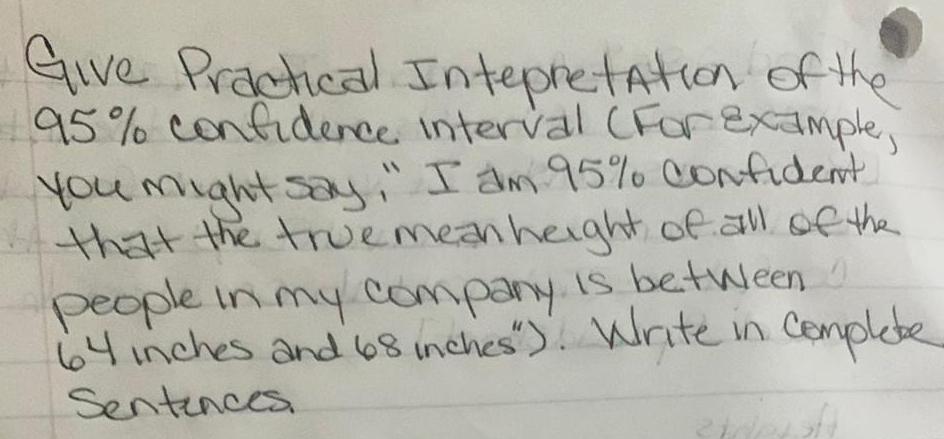 Give Practical Intepretation of the
95% confidence interval (For Example,
you might say, " I am 95% confident
that the true mean height of all of the
people in my company is between
64 inches and 68 inches"). Write in complete
Sentences.